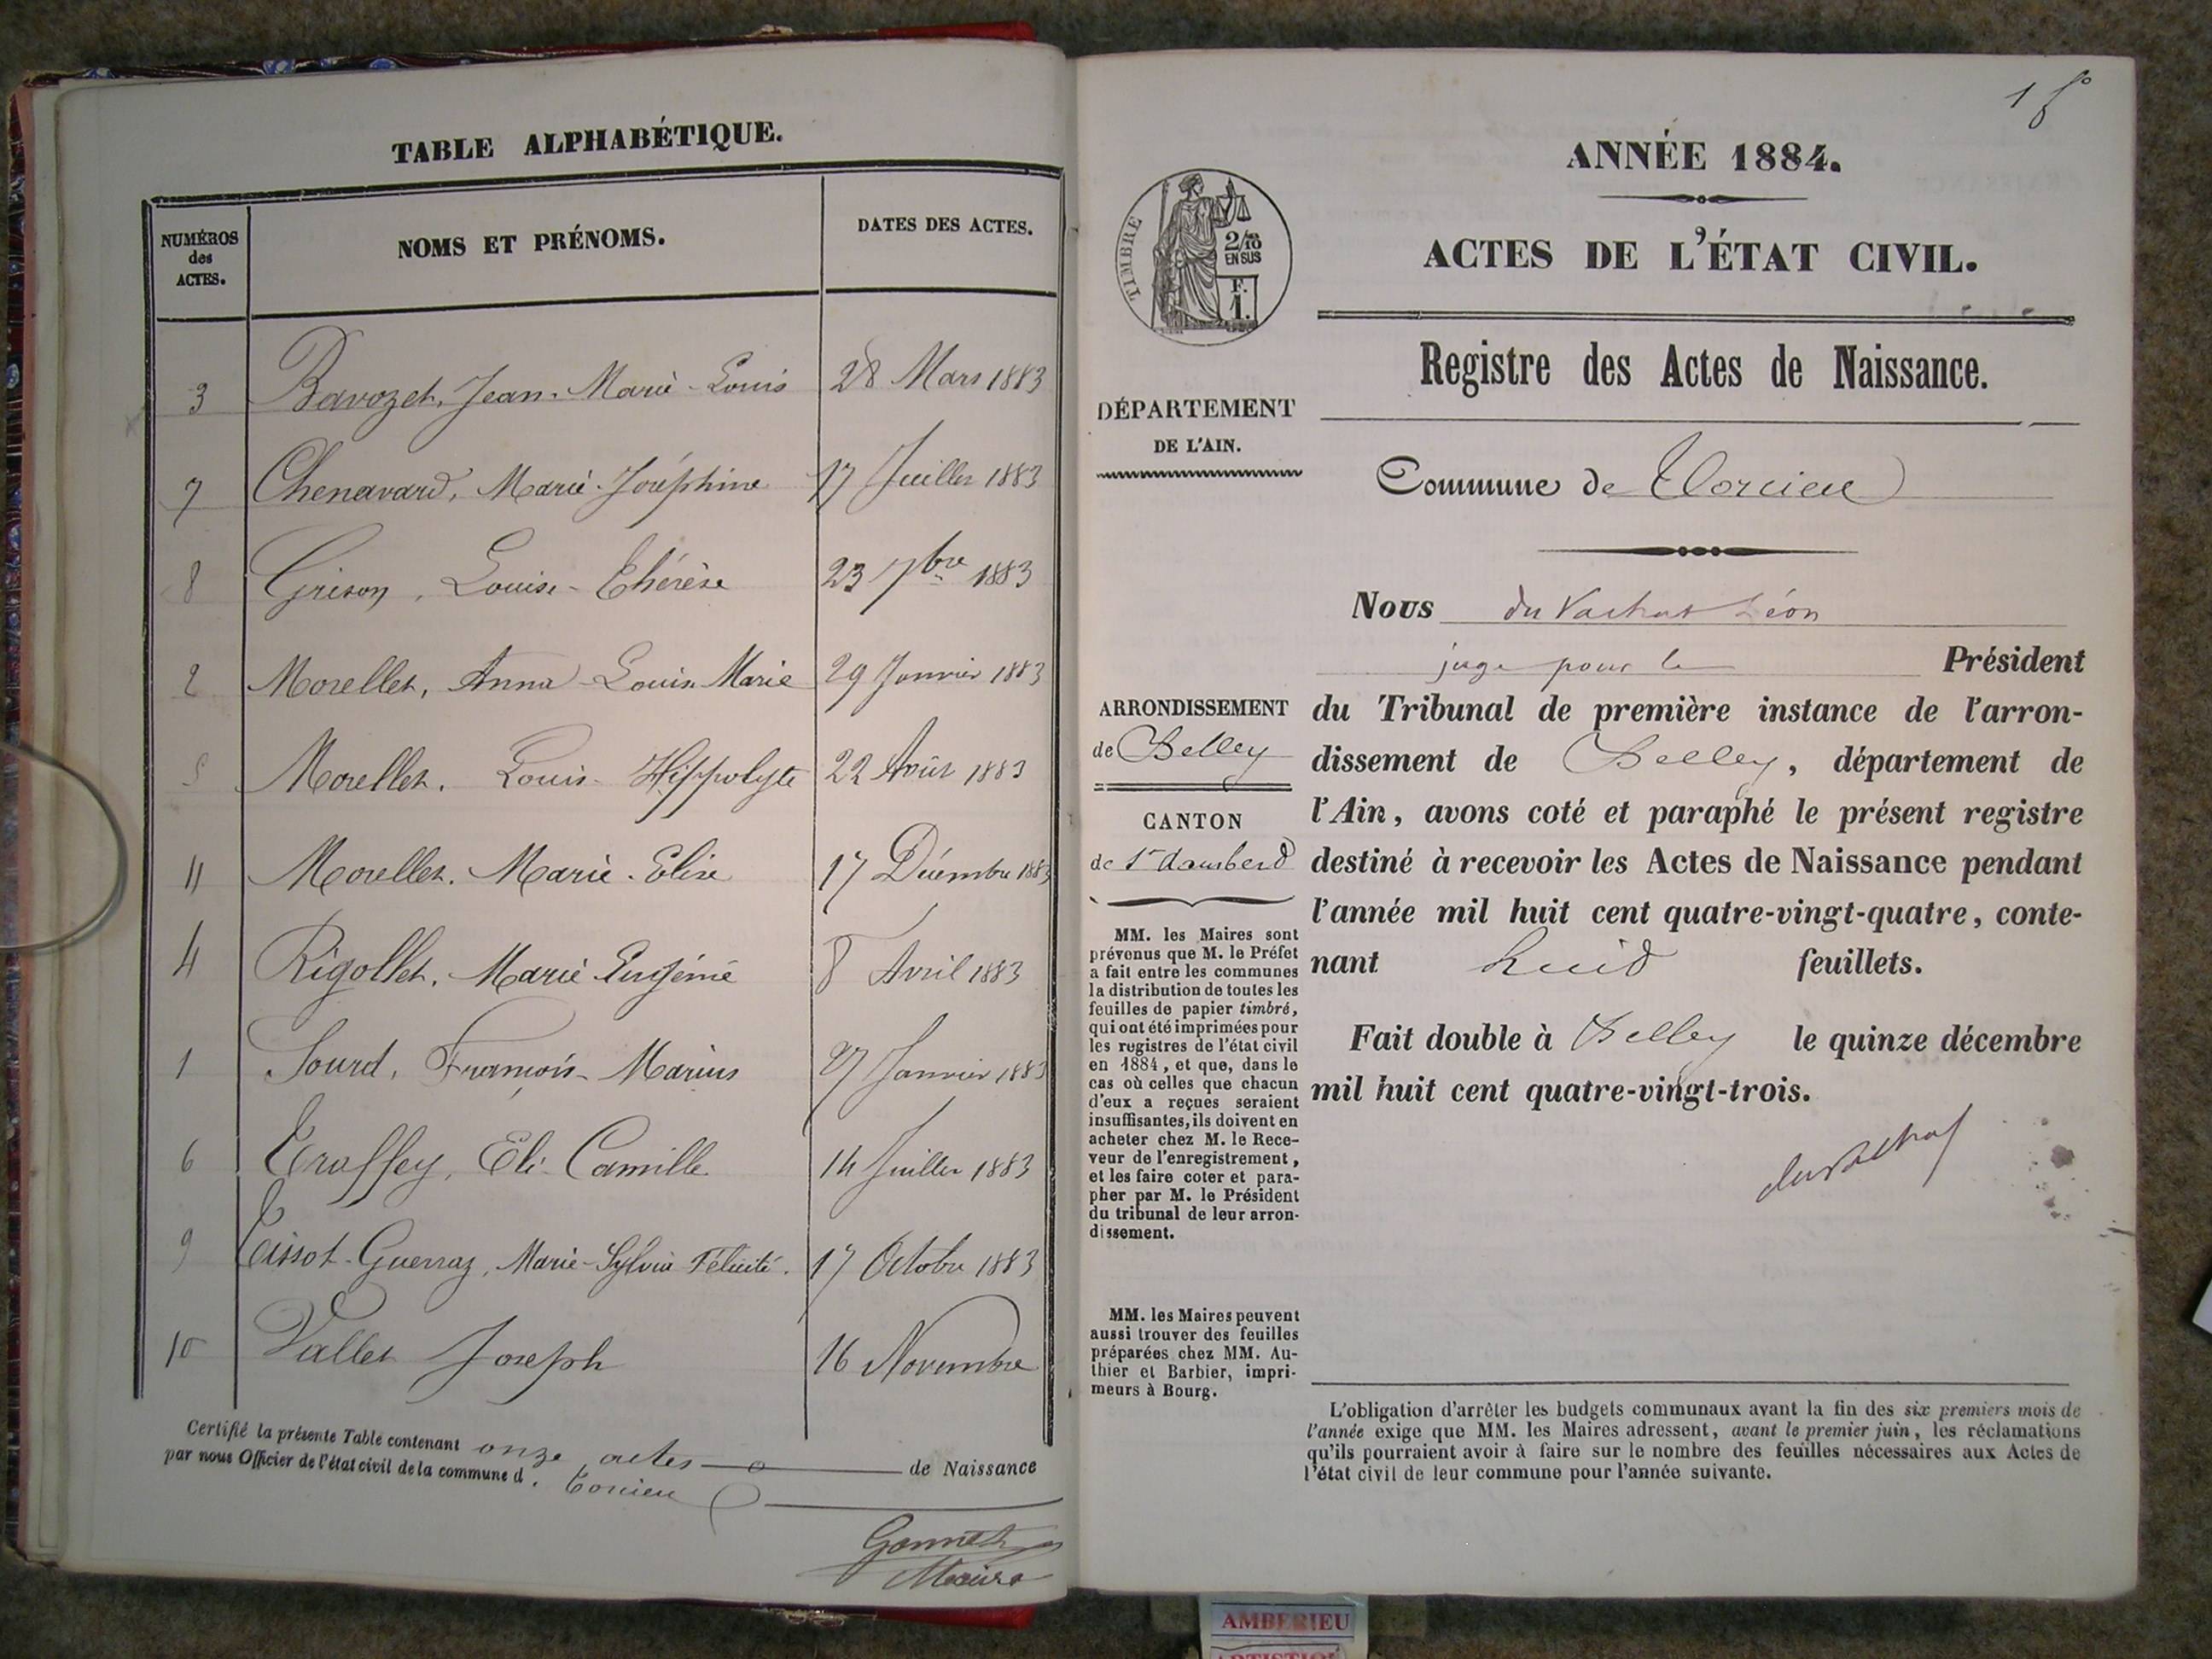 TABLE ALPHABÉTIQUE.
NUMÉROS des ACTES.
NOMS ET PRÉNOMS.
DATES DES ACTES.
3 Bavozet, Jean-Marie-Louis 28 Mars 1883
7 Chenavard, Marie-Joséphine 17 Juillet 1883
8 Grison, Louise-Thérèse 23 7bre 1883
2 Morellet, Anna Louise Marie 29 Janvier 1883
5 Morellet, Louis-Hippolyte 22 Août 1883
11 Morellet, Marie-Elise 17 Décembre 1883
4 Rigollet, Marie Eugénie 8 Avril 1883
1 Sourd, François-Marius 27 Janvier 1883
6 Traffey, Eli-Camille 14 Juillet 1883
9 Tissot-Guerraz, Marie-Sylvie Félicité. 17 Octobre 1883
10 Vallet Joseph 16 Novembre
Certifié la présente Table contenant onze actes de Naissance
par nous Officier de l'état civil de la commune d. Torcieu
Gonnet
Maire
1 fo
ANNÉE 1884.
ACTES DE L'ÉTAT CIVIL.
TIMBRE
2/10
EN SUS
F.
1.
Registre des Actes de Naissance.
DÉPARTEMENT
DE L'AIN.
Commune de Torcieu
Nous du Vachat Léon
juge pour le Président
ARRONDISSEMENT
de Belley
CANTON
de St Rambert
du Tribunal de première instance de l'arron-
dissement de Belley, département de
l'Ain, avons coté et paraphé le présent registre
destiné à recevoir les Actes de Naissance pendant
l'année mil huit cent quatre-vingt-quatre, conte-
nant huit feuillets.
Fait double à Belley le quinze décembre
mil huit cent quatre-vingt-trois.
duvachat
MM. les Maires sont
prévenus que M. le Préfet
a fait entre les communes
la distribution de toutes les
feuilles de papier timbré,
qui ont été imprimées pour
les registres de l'état civil
en 1884, et que, dans le
cas où celles que chacun
d'eux a reçues seraient
insuffisantes, ils doivent en
acheter chez M. le Rece-
veur de l'enregistrement,
et les faire coter et para-
pher par M. le Président
du tribunal de leur arron-
dissement.
MM. les Maires peuvent
aussi trouver des feuilles
préparées chez MM. Au-
thier et Barbier, impri-
meurs à Bourg.
L'obligation d'arrêter les budgets communaux avant la fin des six premiers mois de
l'année exige que MM. les Maires adressent, avant le premier juin, les réclamations
qu'ils pourraient avoir à faire sur le nombre des feuilles nécessaires aux Actes de
l'état civil de leur commune pour l'année suivante.
AMBERIEU